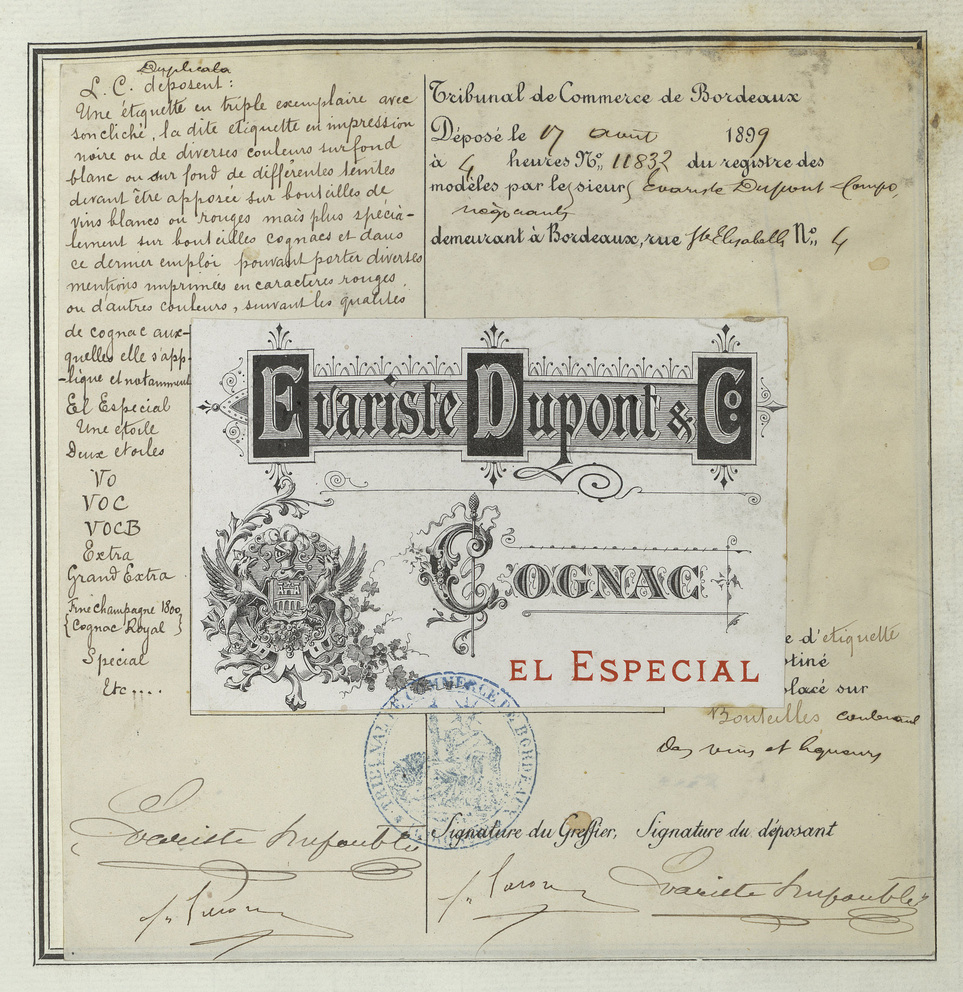 Duplicata
L. C. déposent :
Une étiquette en triple exemplaire avec
son cliché, la dite etiquette en impression
noire ou de diverses couleurs sur fond
blanc ou sur fond de différentes teintes
devant être apposée sur bouteilles de
vins blancs ou rouges mais plus spécia-
lement sur bouteilles cognacs et dans
ce dernier emploi pouvant porter diverses
mentions imprimées en caractères rouges
ou d'autres couleurs, suivant les qualités
de cognac aux-
quelles elle s'app-
-lique et notamment
El Especial
Une etoile
Deux etoiles
VO
VOC
VOCB
Extra
Grand Extra
Fine champagne 1800
{Cognac Royal}
Spécial
Etc....
Tribunal de Commerce de Bordeaux
Déposé le 17 août 1899
à 4 heures No. 11832 du registre des
modèles par le sieur Evariste Dupont Compo
négociants
demeurant à Bordeaux, rue Ste Elisabeth No. 4
Evariste Dupont & Co
COGNAC
EL ESPECIAL
e d'etiquette
otiné
placé sur
Bouteilles contenant
des vins et liqueurs
TRIBUNAL DE COMMERCE DE BORDEAUX
Signature du Greffier, Signature du déposant
Evariste Dupont & Cie
Evariste Dupont & Cie